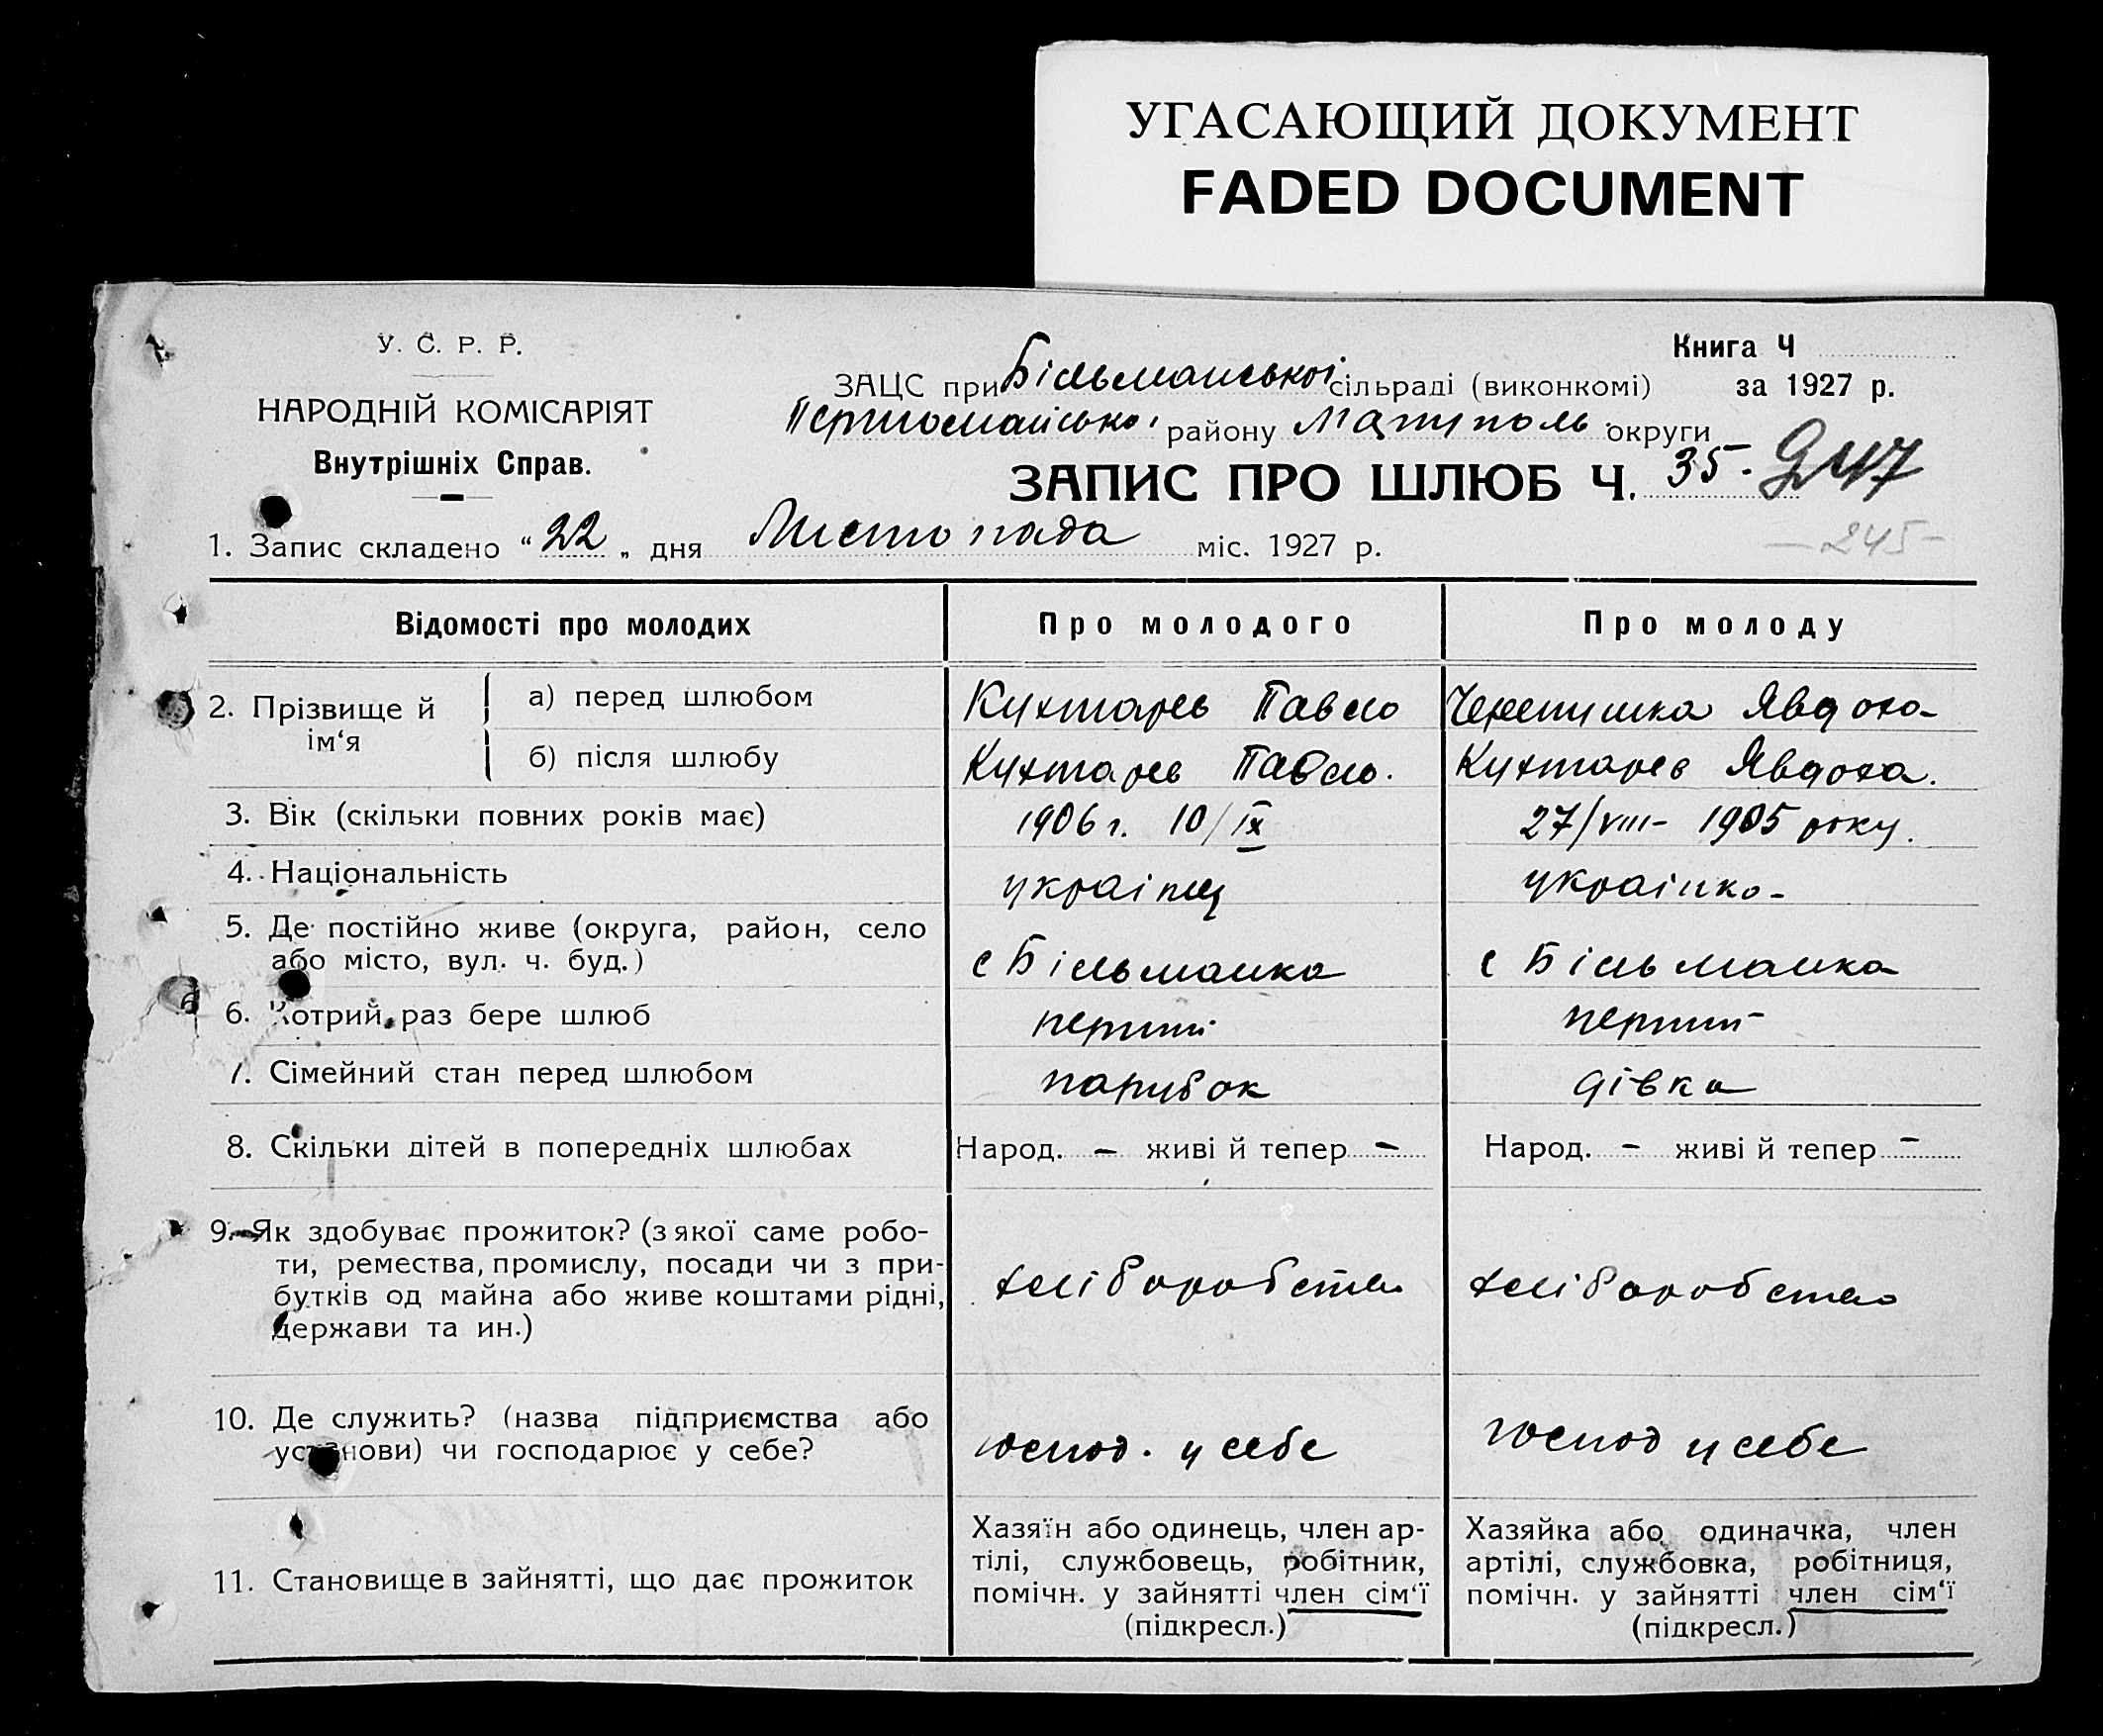 УГАСАЮЩИЙ ДОКУМЕНТ
FADED DOCUMENT
У. С. Р. Р.
НАРОДНІЙ КОМІСАРІЯТ
Внутрішніх Справ.
Книга Ч
за 1927 р.
ЗАЦС при Більманської сільраді (виконкомі)
Першомайської району Маріуполь округи
ЗАПИС ПРО ШЛЮБ Ч. 35 - 247
- 245 -
1. Запис складено "22" дня Листопада міс. 1927 р.
Відомості про молодих Про молодого Про молоду
2. Прізвище й ім'я
а) перед шлюбом Кухтарев Павло Черепушка Явдоха
б) після шлюбу Кухтарев Павло. Кухтарев Явдоха.
3. Вік (скільки повних років має) 1906 г. 10/IX 27/VIII - 1905 року.
4. Національність українец українка
5. Де постійно живе (округа, район, село
або місто, вул. ч. буд.) с Більманка с Більманка
6. Котрий раз бере шлюб перший перший
7. Сімейний стан перед шлюбом парубок дівка
8. Скільки дітей в попередніх шлюбах Народ. - живі й тепер - Народ. - живі й тепер -
9. Як здобуває прожиток? (з якої саме робо-
ти, ремества, промислу, посади чи з при-
бутків од майна або живе коштами рідні,
держави та ин.)
хліборобство хліборобство
10. Де служить? (назва підприємства або
установи) чи господарює у себе?
господ. у себе господ у себе
11. Становище в зайнятті, що дає прожиток
Хазяїн або одинець, член ар-
тілі, службовець, робітник,
помічн. у зайнятті член сім'ї
(підкресл.)
Хазяйка або одиначка, член
артілі, службовка, робітниця,
помічн. у зайнятті член сім'ї
(підкресл.)